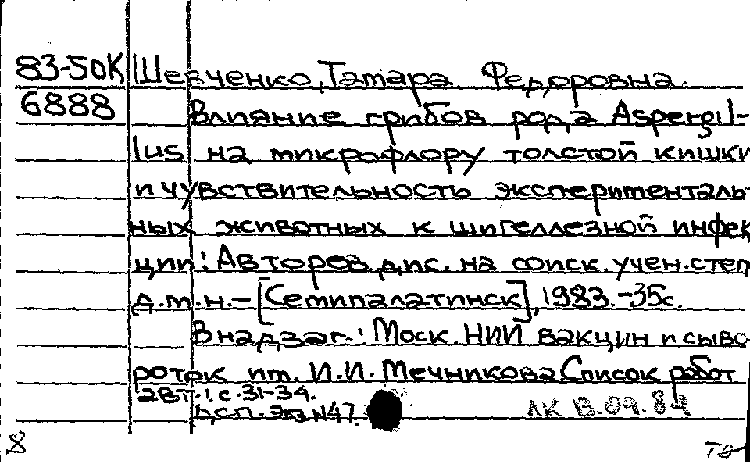 83-50К Шевченко, Тамара Федоровна.
6888 Влияние грибов рода Aspergil-
lus на микрофлору толстой кишки
и чувствительность эксперименталь-
ных животных к шигеллезной инфек
ции: Автореф. дис. на соиск. учен. степ
д.м.н. - [Семипалатинск], 1983. - 35с.
В надзаг.: Моск. НИИ вакцин и сыво
роток им. И.И. Мечникова Список работ
авт.: с. 31-34.
ЦСП. Экз N47. ЛК 13.09.84